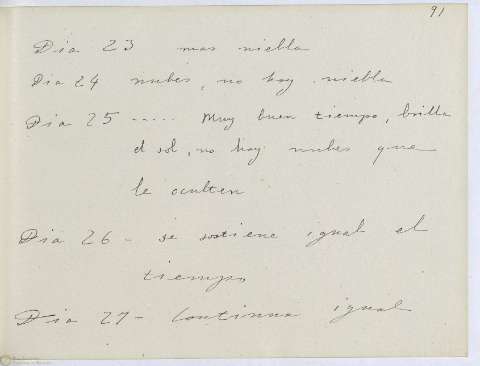 91
Dia 23 mas niebla
Dia 24 nubes, no hay niebla
Dia 25 ..... Muy buen tiempo, brilla
el sol, no hay nubes que
le oculten
Dia 26 - se sostiene igual el
tiempo
Dia 27 - Continua igual